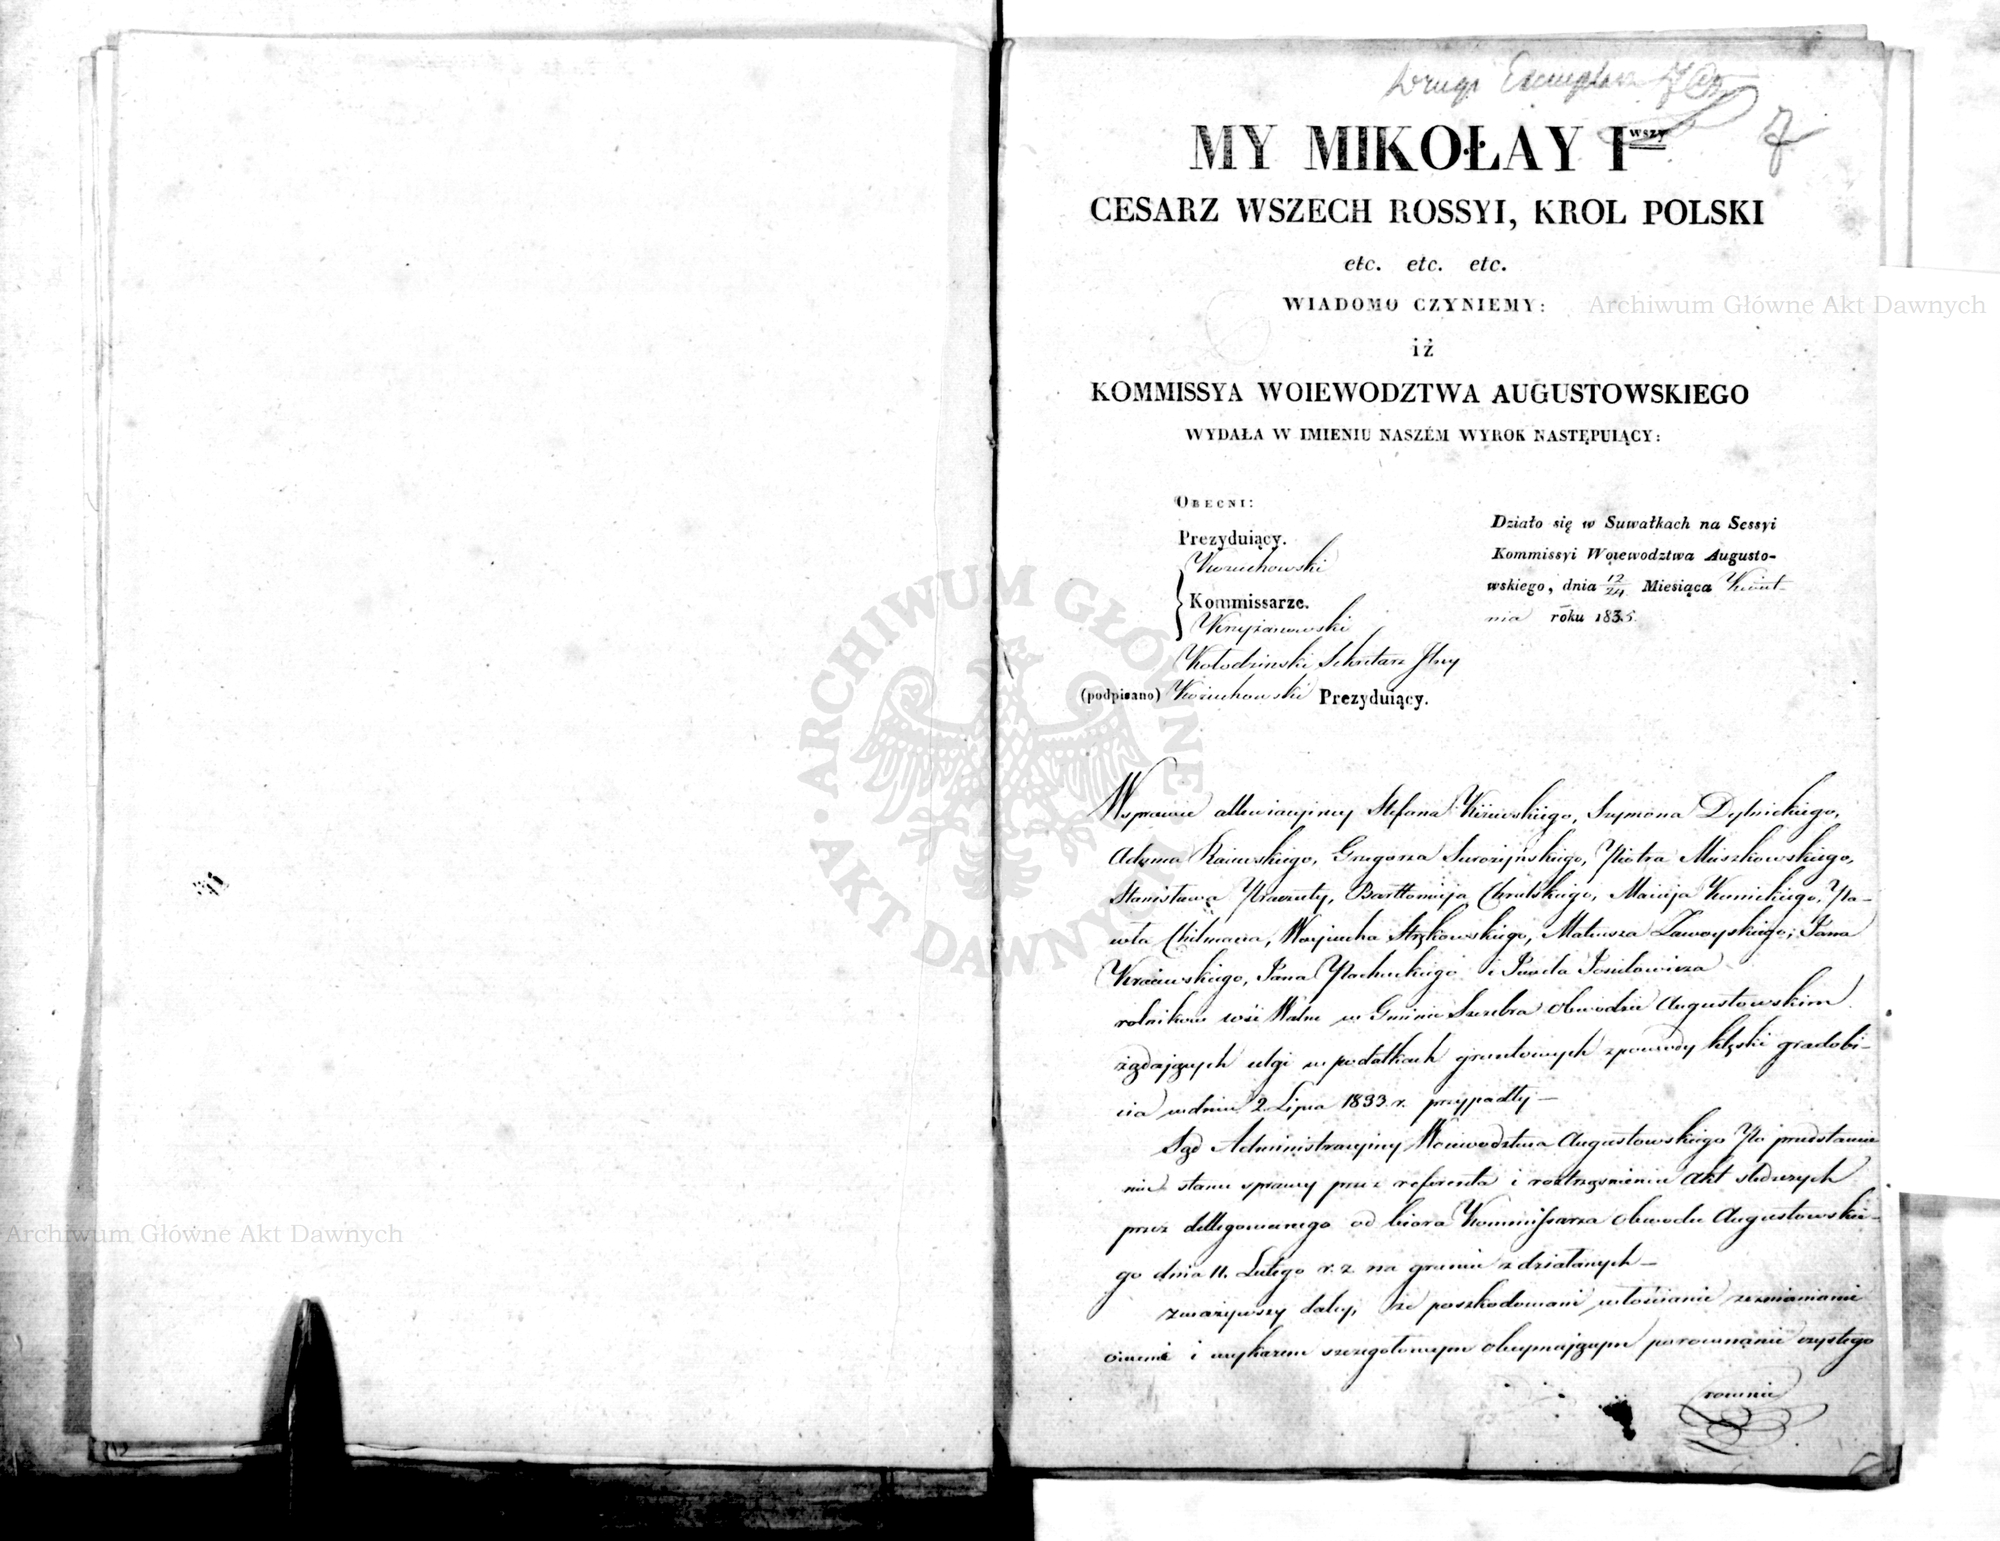 Drugi Exemplarz
7
MY MIKOŁAY Iwszy
CESARZ WSZECH ROSSYI, KROL POLSKI
etc. etc. etc.
WIADOMO CZYNIEMY:
iż
KOMMISSYA WOIEWODZTWA AUGUSTOWSKIEGO
WYDAŁA W IMIENIU NASZÉM WYROK NASTĘPUIĄCY:
OBECNI:
Prezyduiący.
Kożuchowski
Kommissarze.
Kryżanowski
Kołodzinski Sekretarz Jlny
(podpisano) Kożuchowski Prezyduiący.
Działo się w Suwałkach na Sessyi
Kommissyi Woiewodztwa Augusto-
wskiego, dnia 12/24 Miesiąca Kwiet-
nia roku 1835.
W sprawie allewiacyiney Stefana Kiżewskiego, Szymona Dylnickiego,
Adama Raiewskiego, Grzegorza Surożyńskiego, Piotra Muszkowskiego,
Stanisława Praczuty, Bartłomieja Chrulskiego, Macieja Kunickiego, Pa-
wła Chilmana, Wojciecha Strzkowskiego, Mateusza Zawoyskiego, Jana
Kraiewskiego, Jana Pachuckiego i Pawła Josielowicza
rolników wsi Walne w Gminie Szczebra obwodzie Augustowskim
żądających ulgi w podatkach gruntowych z powodu klęski gradobi-
cia w dniu 2 Lipca 1833. r. przypadły—
Sąd Administracyiny Woiewodztwa Augustowskiego Po przedstawie
niu stanu sprawy przez referenta i roztrząśnieniu Akt śledczych
przez dellegowanego od biora Kommissarza obwodu Augustowskie-
go dnia 11. Lutego r. z. na gruncie zdziałanych—
zważywszy daley, że poszkodowani włościanie zeznaniami
swemi i wykazem szczegołowym obeymującym porownanie czystego
rownie
Archiwum Główne Akt Dawnych
Archiwum Główne Akt Dawnych
ARCHIWUM GŁÓWNE · AKT DAWNYCH ·